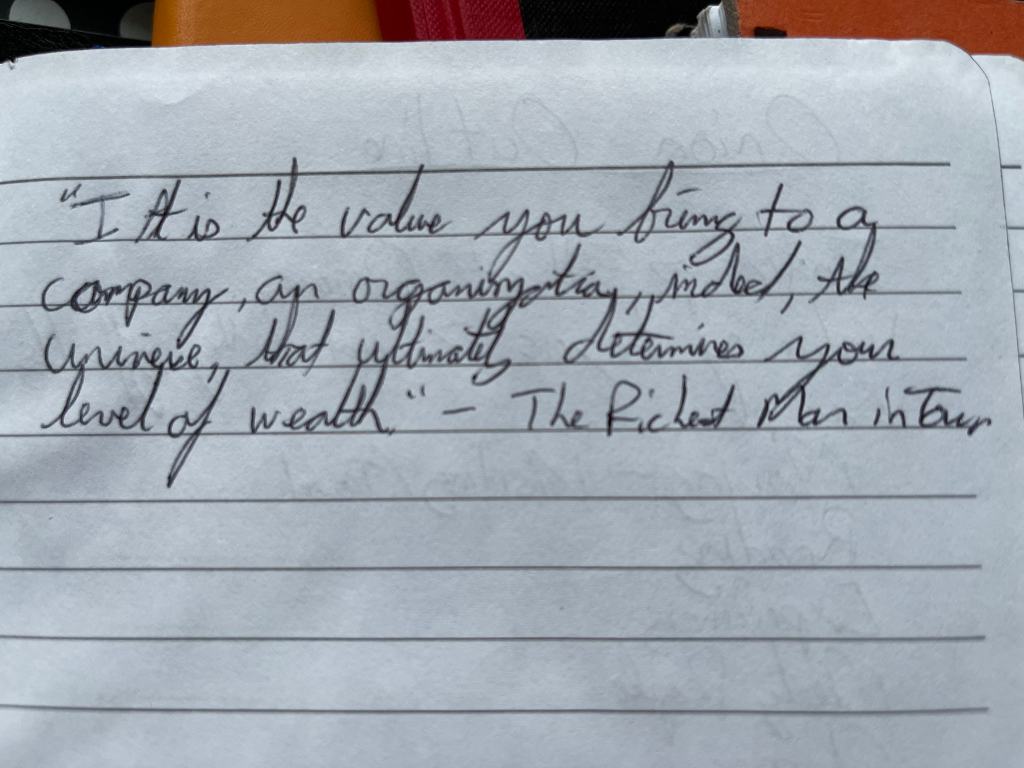 "I It is the value you bring to a
company, an organization, indeed, the
universe, that ultimately determines your
level of wealth." - The Richest Man in Town